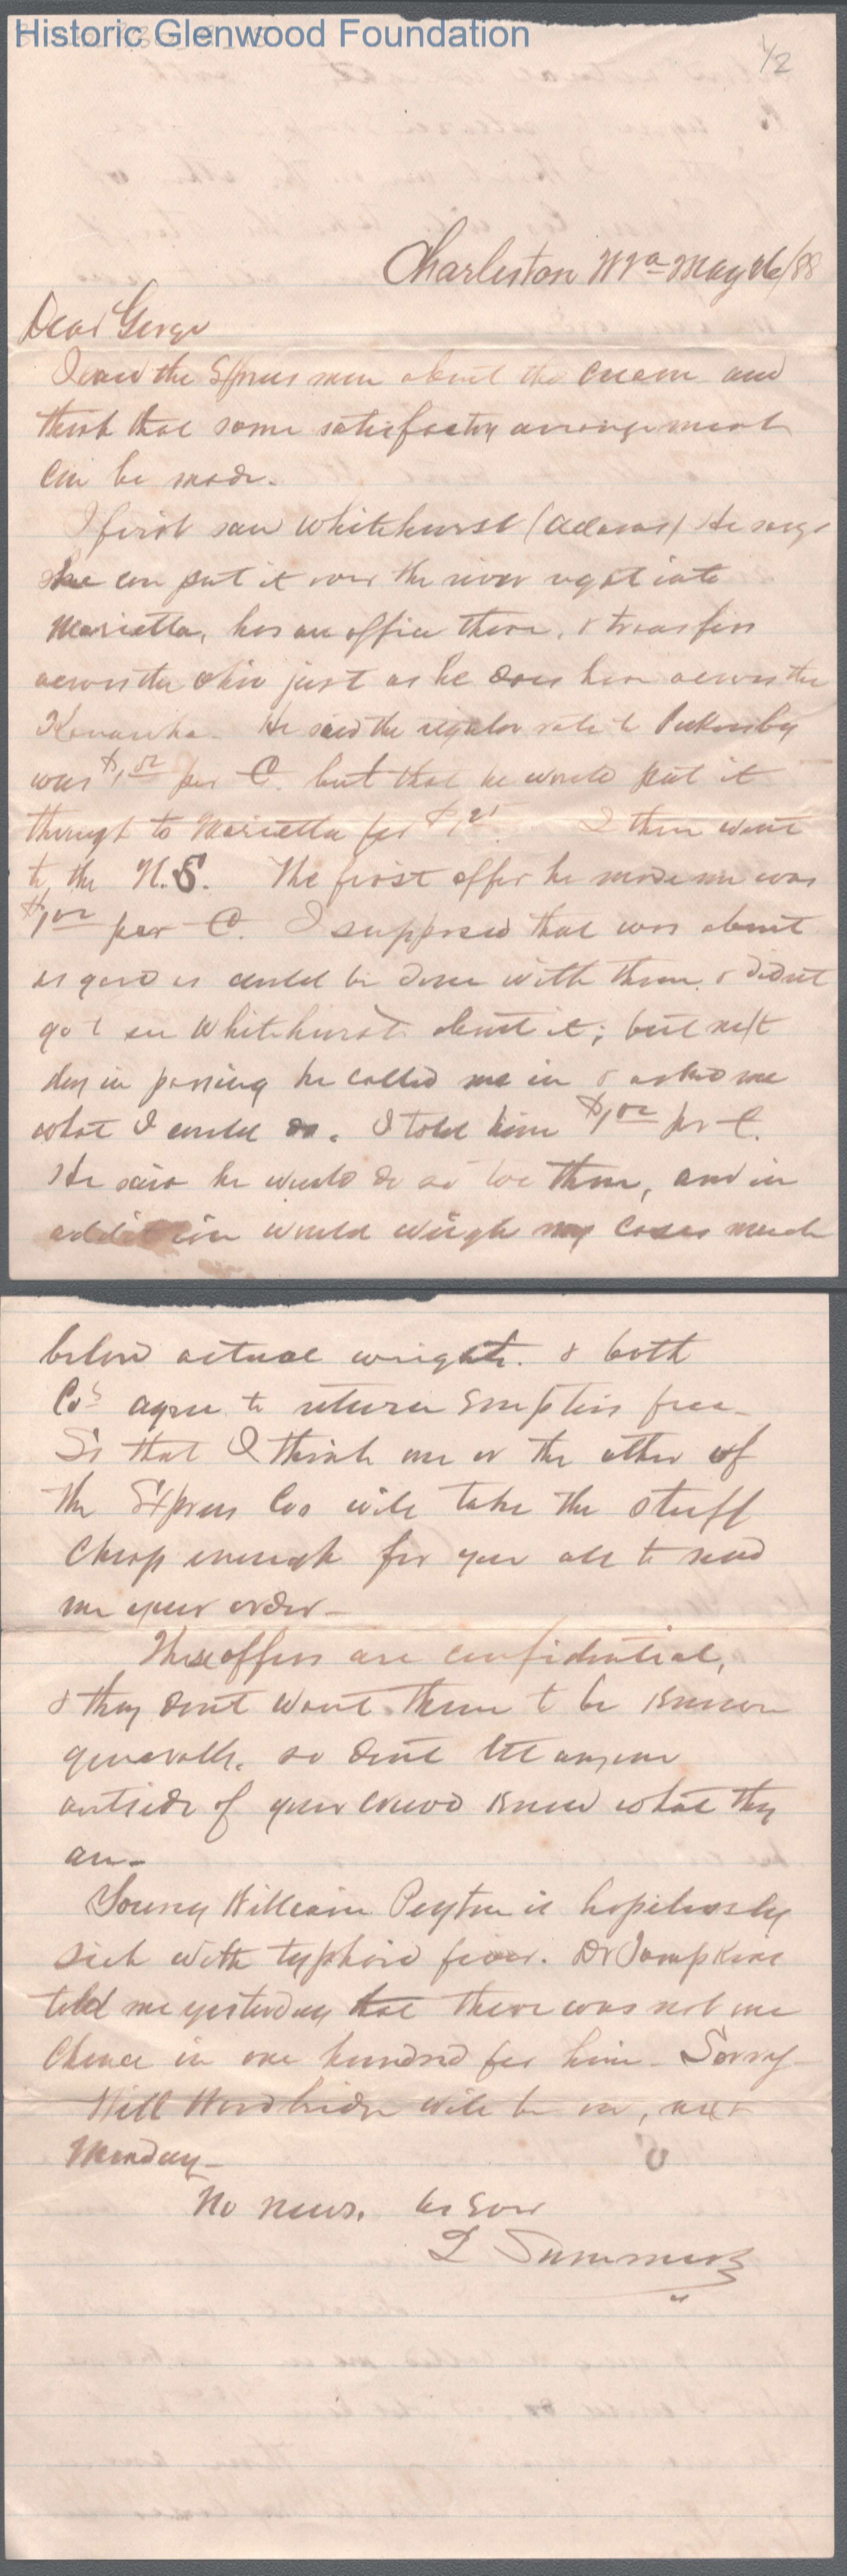 Historic Glenwood Foundation
1/2
Charleston W Va May 26/88
Dear George
I saw the Express men about the cream and
think that some satisfactory arrangement
can be made.
I first saw Whitehurst (Adams) He says
he can put it over the river right into
Marietta, has an office there, & transfers
across the Ohio just as he does here across the
Kanawha. He said the regular rate to Parkersburg
was $1.00 per C. but that he would put it
through to Marietta for $1.25. I then went
to the U.S. The first offer he made me was
$1.00 per C. I supposed that was about
as good as could be done with them, & didnt
go to see Whitehurst about it; but next
day in passing he called me in & asked me
what I could do. I told him $1.00 per C.
He said he would do so too then, and in
addition would weigh my cases much
below actual weight. & both
Cos agree to return empties free -
So that I think one or the other of
the Express Cos will take the stuff
cheap enough for you all to send
me your order -
These offers are confidential,
& they dont want them to be known
generally. so dont let anyone
outside of your crowd know what they
are -
Young William Peyton is hopelessly
sick with typhoid fever. Dr Tompkins
told me yesterday that there was not one
chance in one hundred for him - Sorry -
Will Woodbridge will be on, next
Monday -
No news.
L Summers